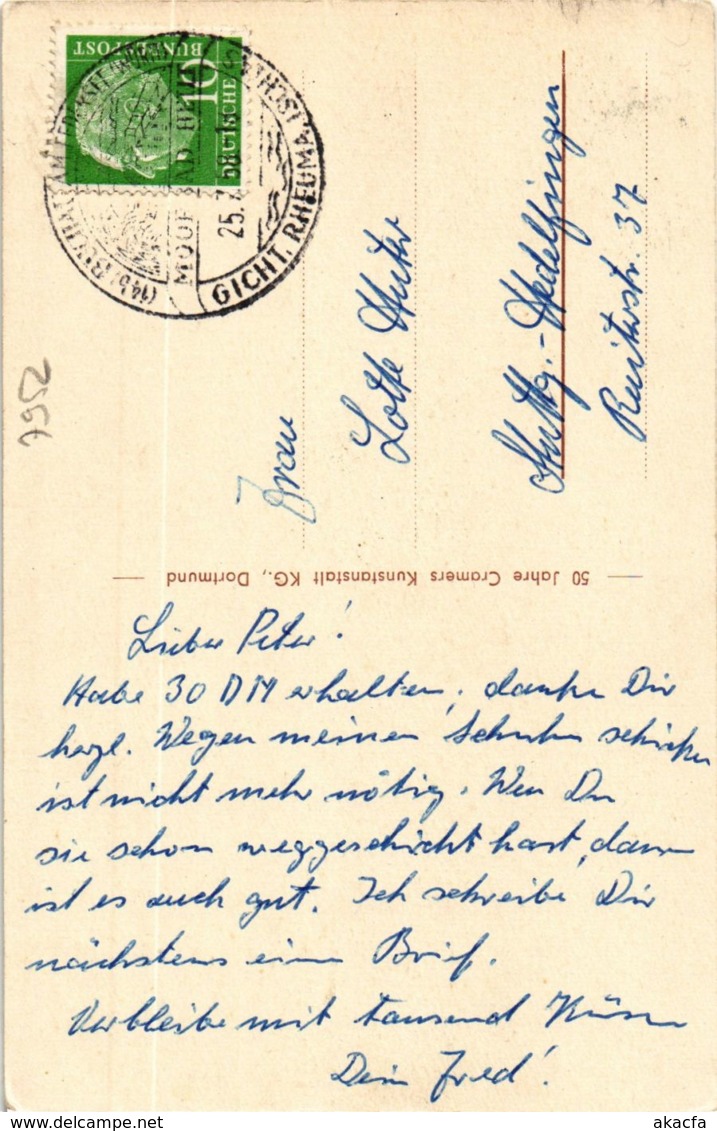 10
DEUTSCHE
BUNDESPOST
(14b) BUCHAU AM FEDERSEE (WÜRTT)
MOORBAD
25. 58
GICHT, RHEUMA
7952
Frau
Lotte
Stuttg.-Hedelfingen
37
50 Jahre Cramers Kunstanstalt KG., Dortmund
Lieber Peter!
Habe 30 DM erhalten, danke Dir
herzl. Wegen meinen Schuhen schicken
ist nicht mehr nötig. Wen Du
sie schon weggeschickt hast, dann
ist es auch gut. Ich schreibe Dir
nächstens einen Brief.
Verbleibe mit tausend Küssen
Dein Fred!
akacfa